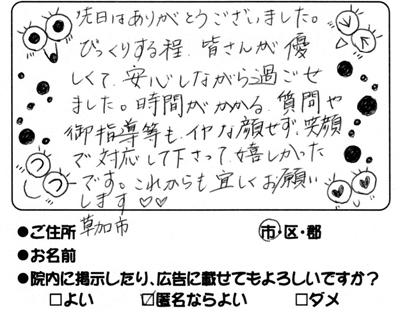 先日はありがとうございました。
びっくりする程、皆さんが優
しくて、安心しながら過ごせ
ました。時間がかかる、質問や
御指導等も、イヤな顔せず、笑顔
で対応して下さって、嬉しかった
です。これからも宜しくお願い
します♡♡
●ご住所 草加市 市・区・郡
●お名前
●院内に掲示したり、広告に載せてもよろしいですか?
□よい ☑匿名ならよい □ダメ